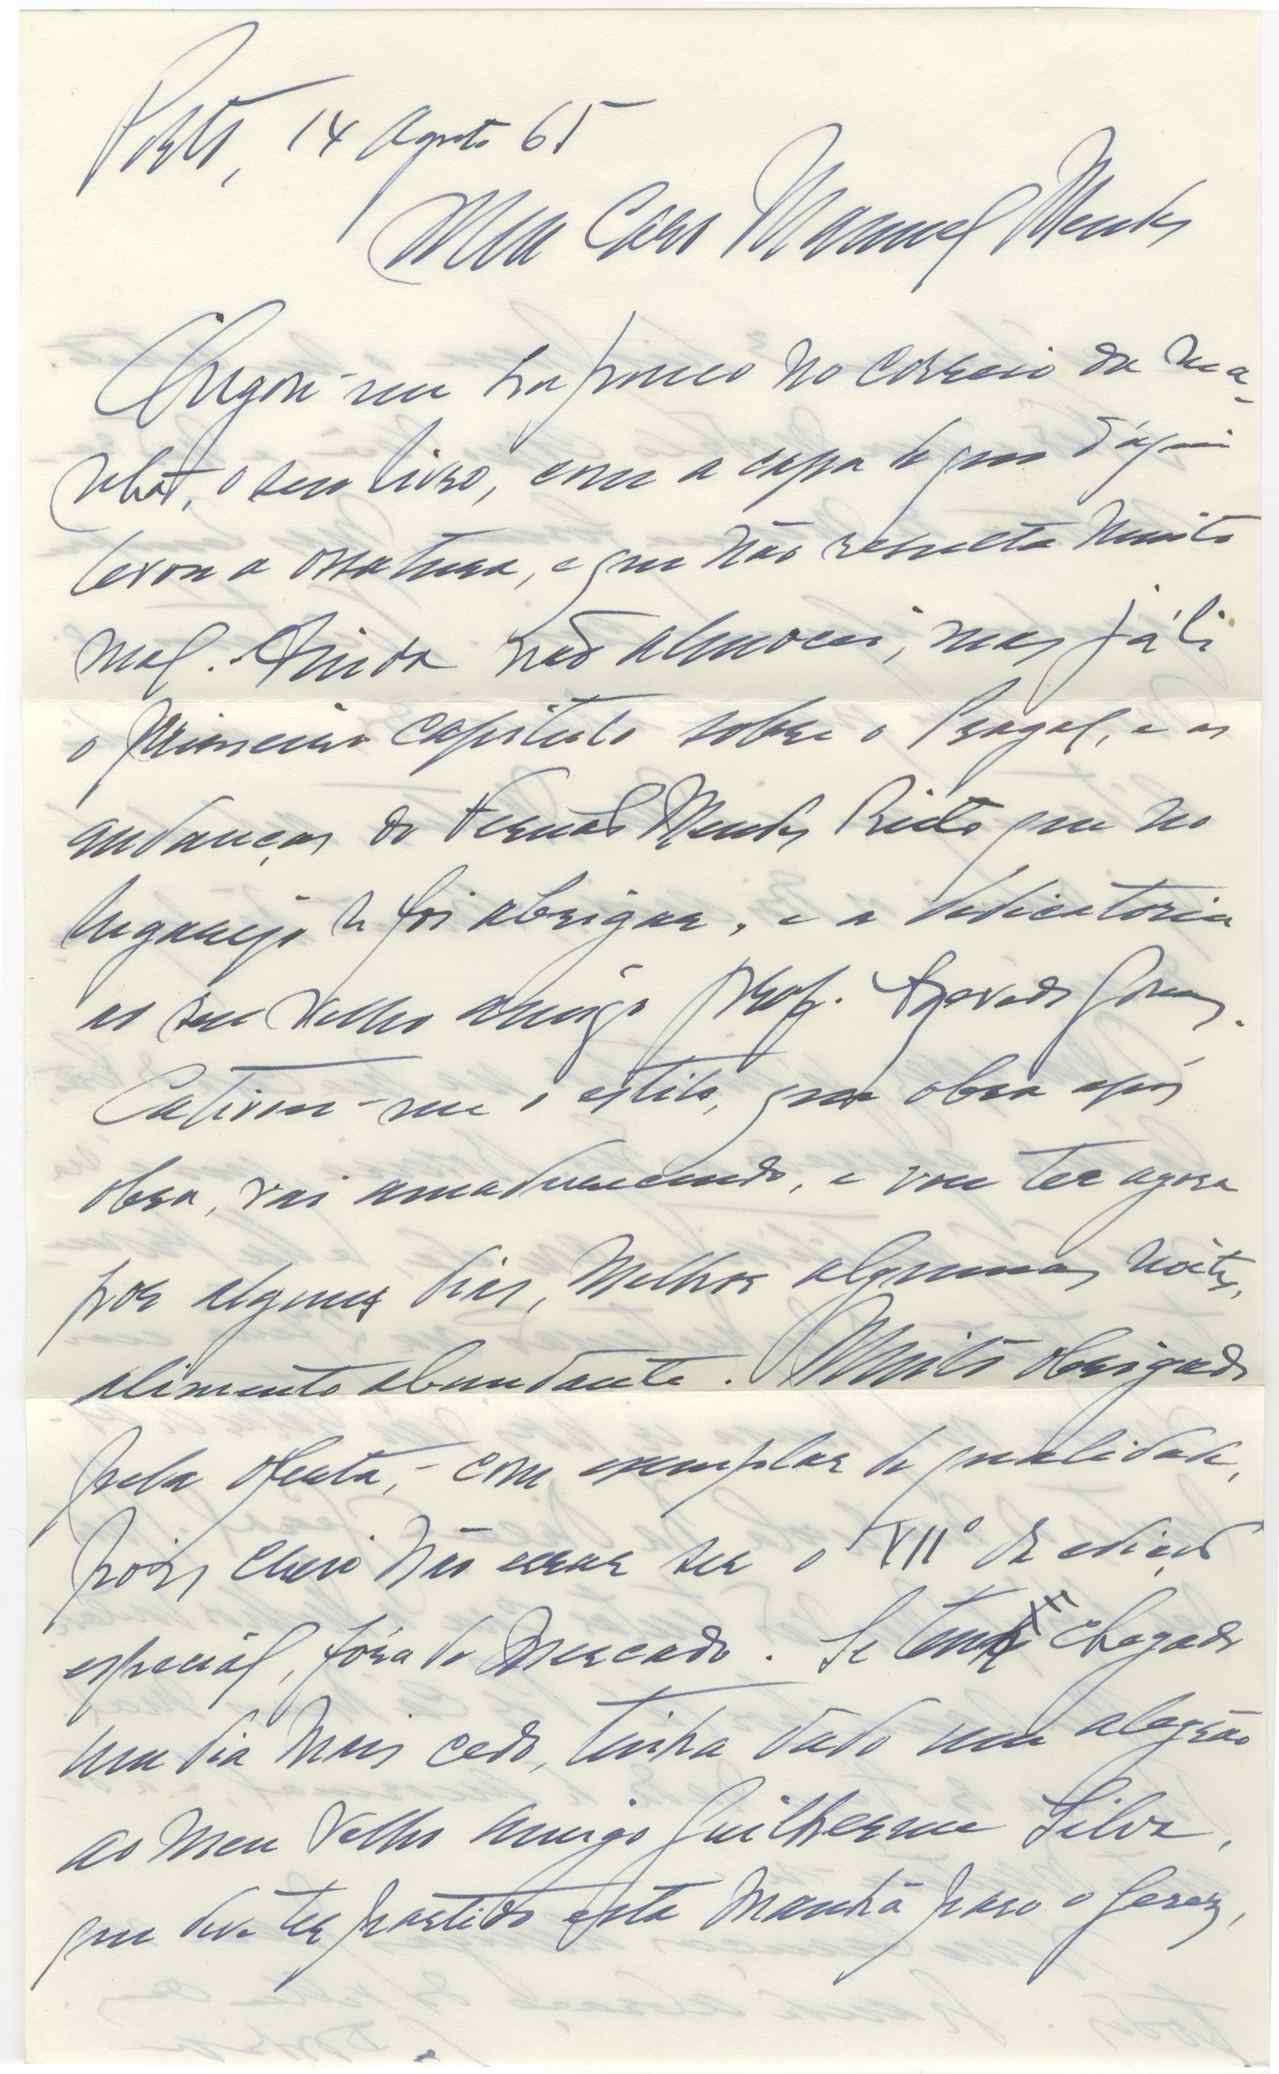 Porto, 14 Agosto 65
Meu Caro Manuel Mendes
Chegou-me ha pouco no correio da ma-
nhã, o seu livro, com a capa de que dáqui
levou a ossatura, e que não resulta muito
mal. Ainda não almocei, mas já li
o primeiro capitulo sobre o Pragal, e as
andanças do Fernão Mendes Pinto que no
lugarejo se foi abrigar, e a dedicatoria
ao seu velho amigo Prof. Azevedo Gomes.
Cativou-me o estilo, que obra após
obra, vai amadurecendo, e vou ter agora
por alguns dias, melhor algumas noites,
alimento abundante. Muito obrigado
pela oferta, - com exemplar de qualidade,
pois creio não errar ser o XIIº da edição
especial, fóra do mercado. Se tem chegado
um dia mais cedo, tinha dado um alegrão
ao meu velho amigo Guilherme Silva,
que deve ter partido esta manhã para o Gerez,